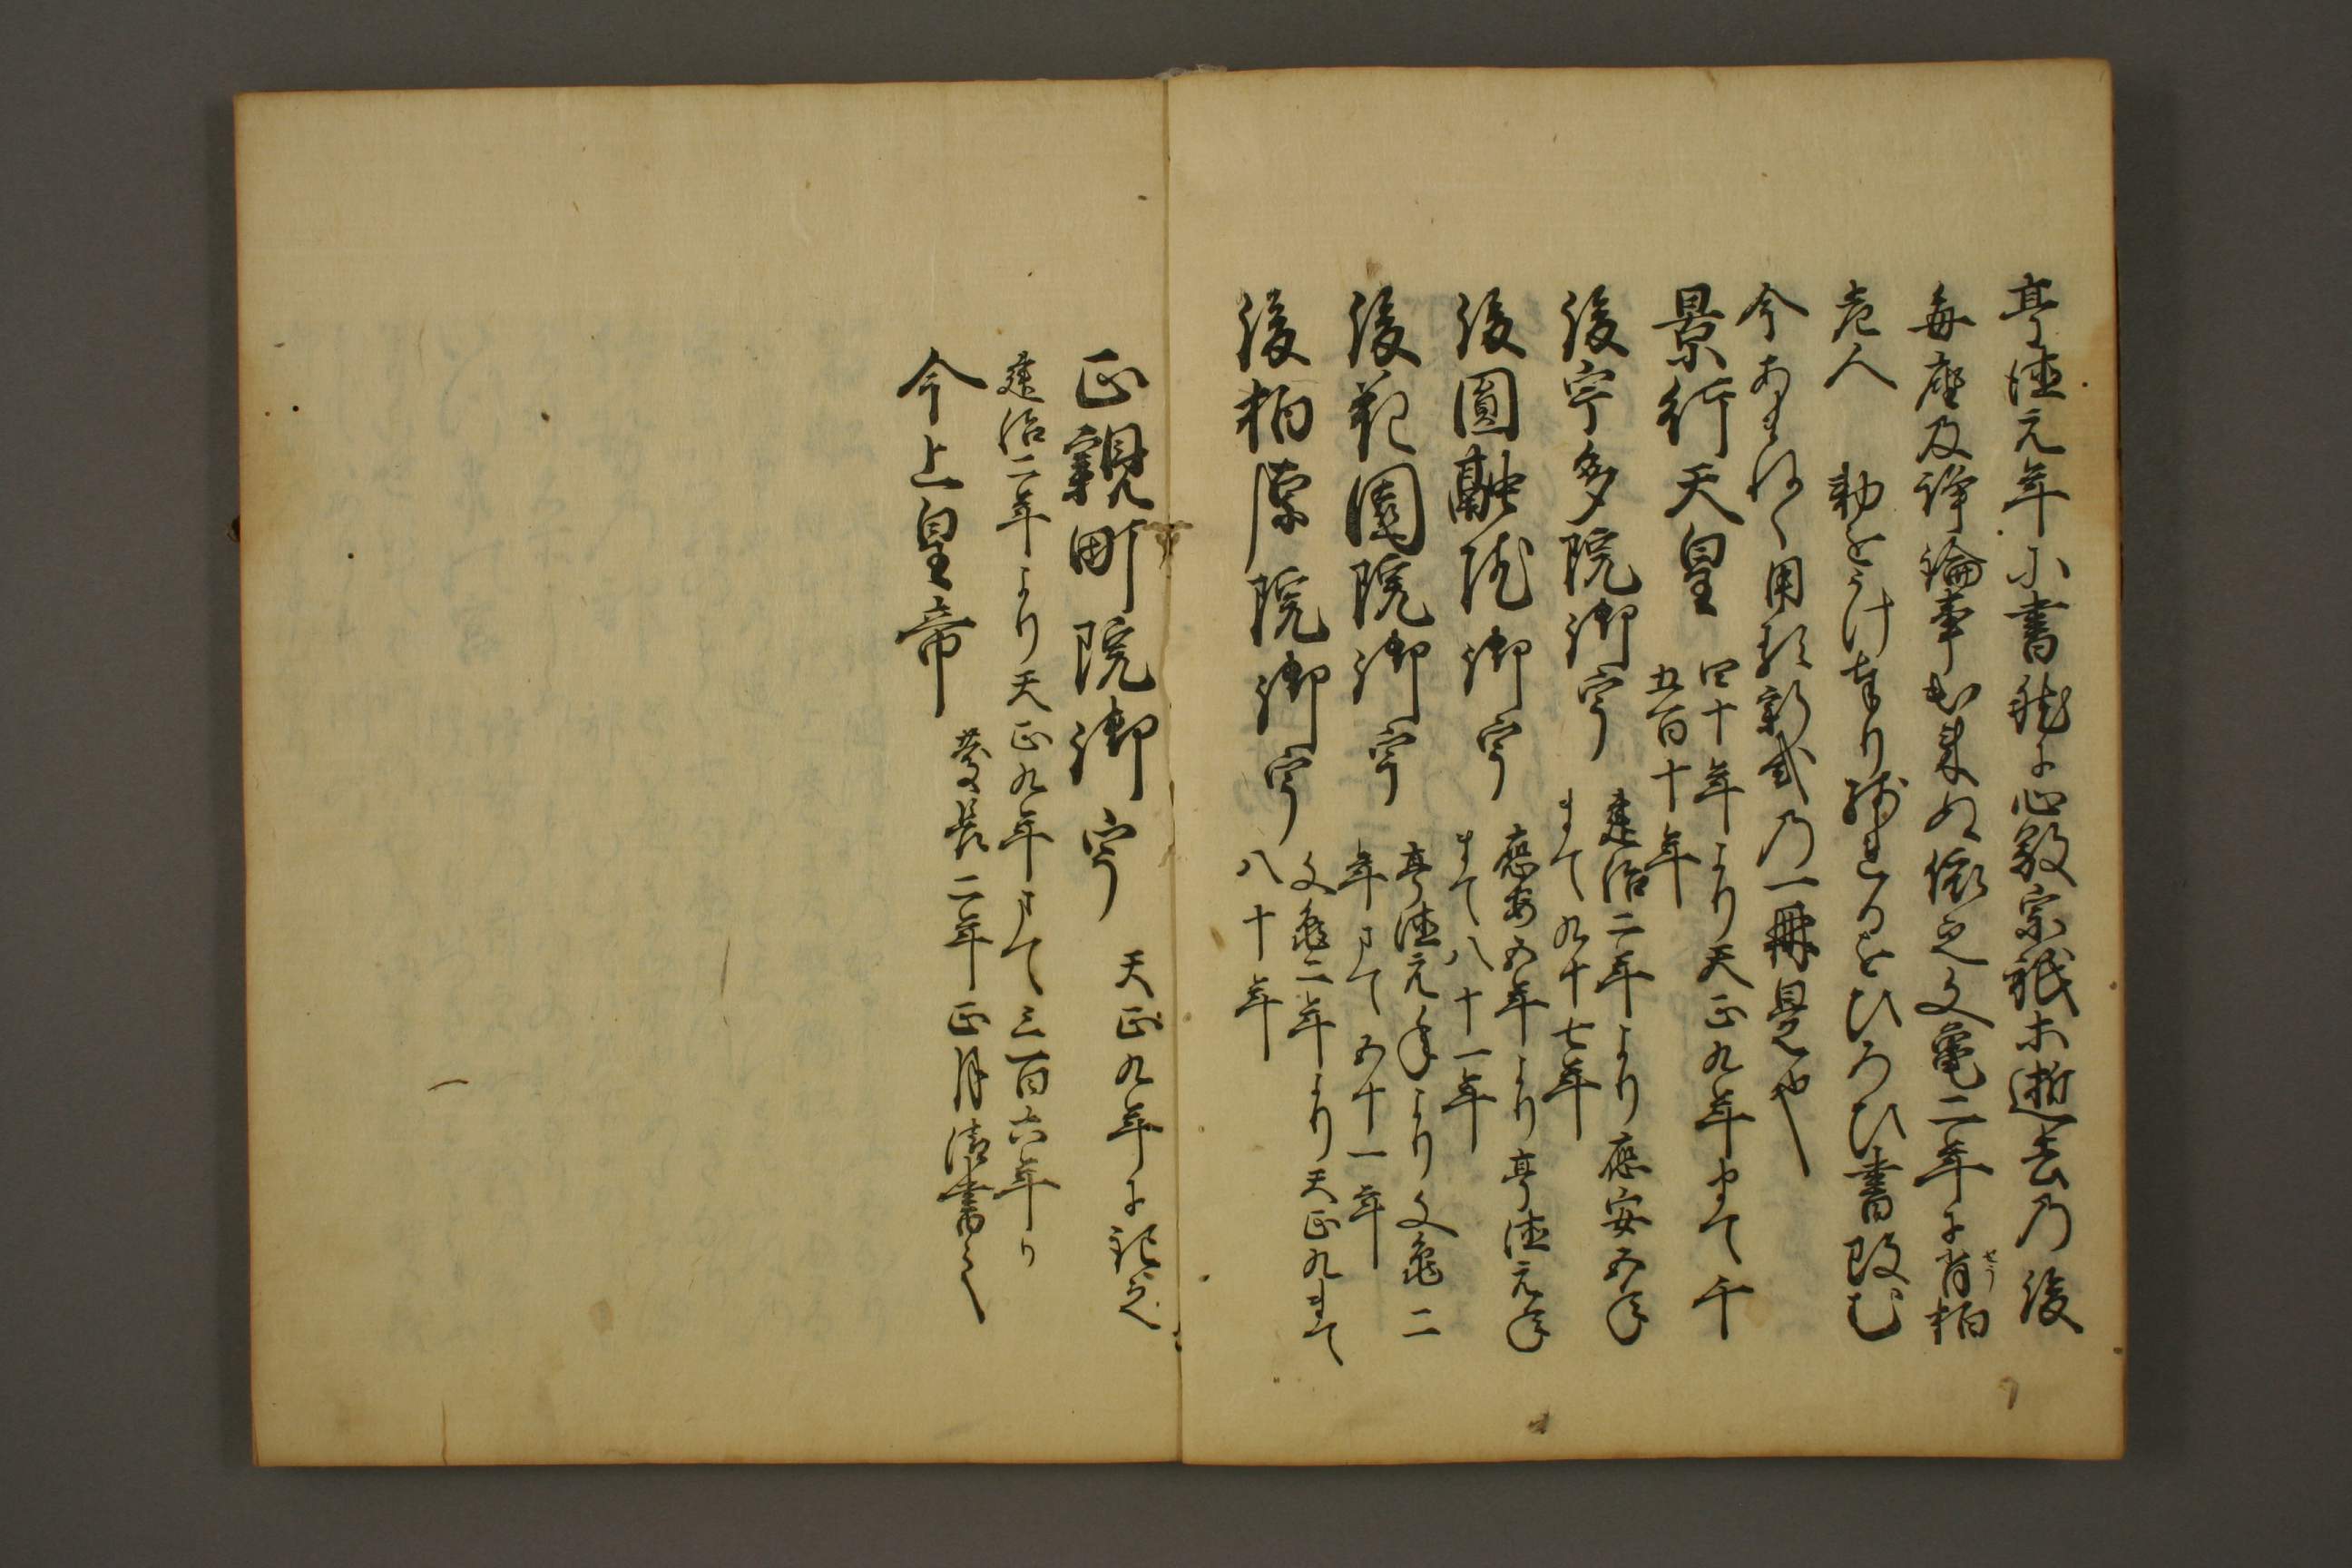 享徳元年に書継に心敬宗祇等逝去乃後
毎座及諍論事出来ぬ依之文亀二年に肖柏
せう
老人　勅をうけ奉り残ることをひろひ書改む
今あまねく用段新式乃一冊是也
景行天皇
四十年より天正九年まて千
五百十年
後宇多院御宇
建治二年より應安五年
まて九十七年
後圓融院御宇
應安五年より享徳元年
まて八十一年
後花園院御宇
享徳元年より文亀二
年まて五十一年
後柏原院御宇
文亀二年より天正九まて
八十年
正親町院御宇
天正九年に記之
建治二年より天正九年まて三百六年か
今上皇帝
慶長二年正月清書之